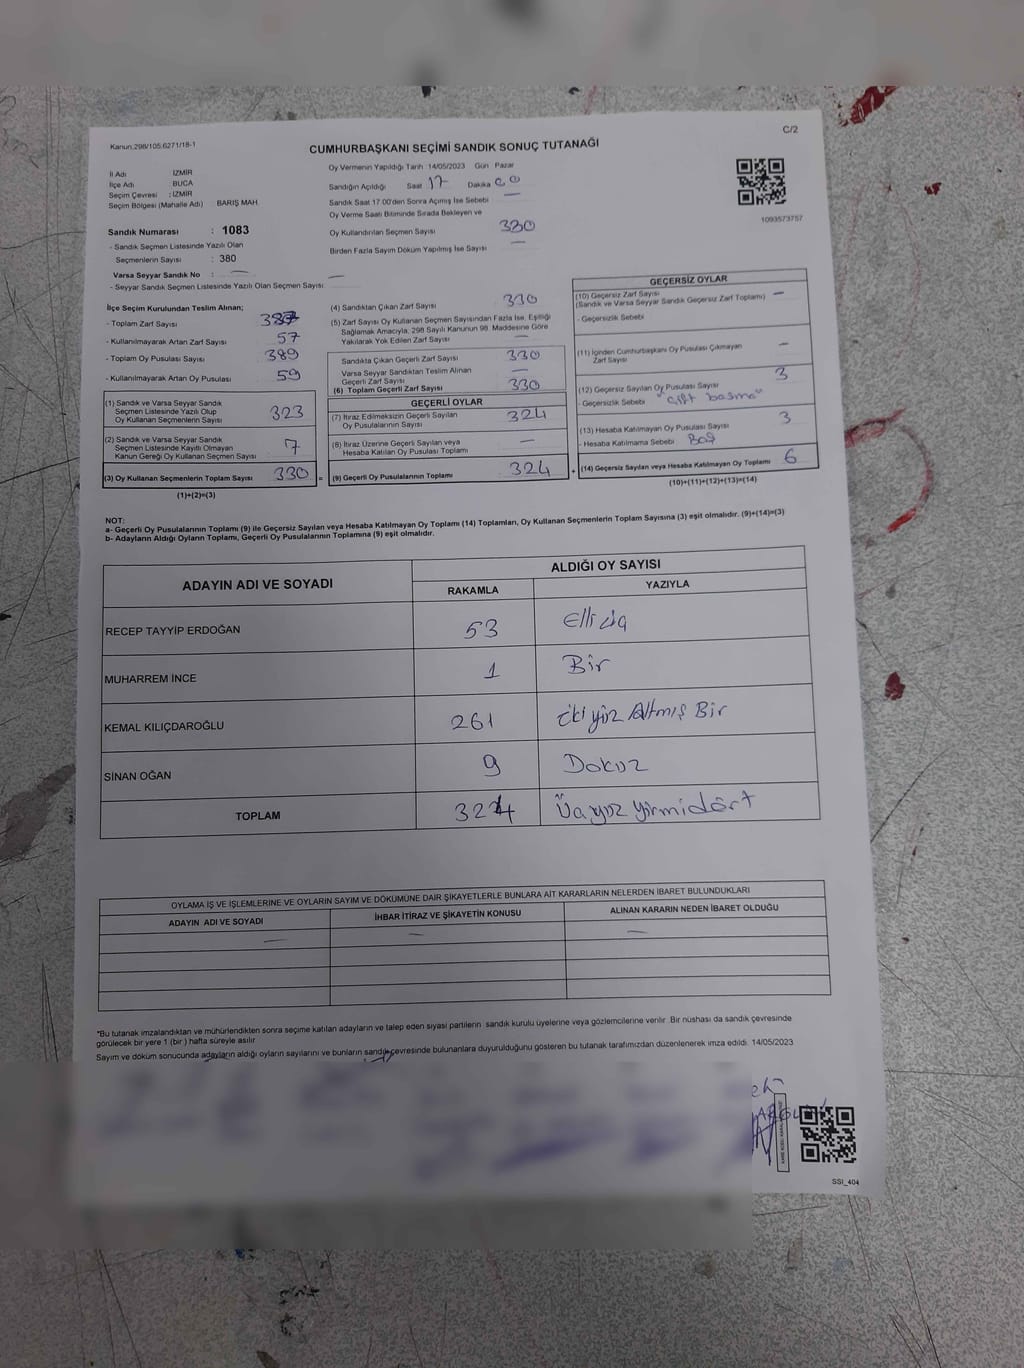 Kanun:298/105;6271/18-1
C/2
CUMHURBAŞKANI SEÇİMİ SANDIK SONUÇ TUTANAĞI
İl Adı İZMİR
İlçe Adı BUCA
Seçim Çevresi : İZMİR
Seçim Bölgesi (Mahalle Adı) BARIŞ MAH.
Sandık Numarası : 1083
- Sandık Seçmen Listesinde Yazılı Olan
Seçmenlerin Sayısı : 380
Varsa Seyyar Sandık No : —
- Seyyar Sandık Seçmen Listesinde Yazılı Olan Seçmen Sayısı: —
Oy Vermenin Yapıldığı Tarih 14/05/2023 Gün Pazar
Sandığın Açıldığı Saat 17 Dakika 00
Sandık Saat 17.00'den Sonra Açılmış İse Sebebi —
Oy Verme Saati Bitiminde Sırada Bekleyen ve
Oy Kullandırılan Seçmen Sayısı 330
Birden Fazla Sayım Döküm Yapılmış İse Sayısı —
1093573757
İlçe Seçim Kurulundan Teslim Alınan;
- Toplam Zarf Sayısı 387
- Kullanılmayarak Artan Zarf Sayısı 57
- Toplam Oy Pusulası Sayısı 389
- Kullanılmayarak Artan Oy Pusulası 59
(1) Sandık ve Varsa Seyyar Sandık
Seçmen Listesinde Yazılı Olup
Oy Kullanan Seçmenlerin Sayısı 323
(2) Sandık ve Varsa Seyyar Sandık
Seçmen Listesinde Kayıtlı Olmayan
Kanun Gereği Oy Kullanan Seçmen Sayısı 7
(3) Oy Kullanan Seçmenlerin Toplam Sayısı 330
(1)+(2)=(3)
(4) Sandıktan Çıkan Zarf Sayısı 330
(5) Zarf Sayısı Oy Kullanan Seçmen Sayısından Fazla İse, Eşitliği
Sağlamak Amacıyla, 298 Sayılı Kanunun 98. Maddesine Göre
Yakılarak Yok Edilen Zarf Sayısı —
Sandıkta Çıkan Geçerli Zarf Sayısı 330
Varsa Seyyar Sandıktan Teslim Alınan
Geçerli Zarf Sayısı —
(6) Toplam Geçerli Zarf Sayısı 330
GEÇERLİ OYLAR
(7) İtiraz Edilmeksizin Geçerli Sayılan
Oy Pusulalarının Sayısı 324
(8) İtiraz Üzerine Geçerli Sayılan veya
Hesaba Katılan Oy Pusulası Toplamı —
= (9) Geçerli Oy Pusulalarının Toplamı 324
GEÇERSİZ OYLAR
(10) Geçersiz Zarf Sayısı
(Sandık ve Varsa Seyyar Sandık Geçersiz Zarf Toplamı) —
- Geçersizlik Sebebi
(11) İçinden Cumhurbaşkanı Oy Pusulası Çıkmayan
Zarf Sayısı —
(12) Geçersiz Sayılan Oy Pusulası Sayısı 3
- Geçersizlik Sebebi "Çift basma"
(13) Hesaba Katılmayan Oy Pusulası Sayısı 3
- Hesaba Katılmama Sebebi Boş
+ (14) Geçersiz Sayılan veya Hesaba Katılmayan Oy Toplamı 6
(10)+(11)+(12)+(13)=(14)
NOT:
a- Geçerli Oy Pusulalarının Toplamı (9) ile Geçersiz Sayılan veya Hesaba Katılmayan Oy Toplamı (14) Toplamları, Oy Kullanan Seçmenlerin Toplam Sayısına (3) eşit olmalıdır. (9)+(14)=(3)
b- Adayların Aldığı Oyların Toplamı, Geçerli Oy Pusulalarının Toplamına (9) eşit olmalıdır.
ADAYIN ADI VE SOYADI
ALDIĞI OY SAYISI
RAKAMLA YAZIYLA
RECEP TAYYİP ERDOĞAN 53 Elli
MUHARREM İNCE 1 Bir
KEMAL KILIÇDAROĞLU 261 İkiyüz Altmış Bir
SİNAN OĞAN 9 Dokuz
TOPLAM 324 Üçyüz yirmidört
OYLAMA İŞ VE İŞLEMLERİNE VE OYLARIN SAYIM VE DÖKÜMÜNE DAİR ŞİKAYETLERLE BUNLARA AİT KARARLARIN NELERDEN İBARET BULUNDUKLARI
ADAYIN ADI VE SOYADI İHBAR İTİRAZ VE ŞİKAYETİN KONUSU ALINAN KARARIN NEDEN İBARET OLDUĞU
— — —
*Bu tutanak imzalandıktan ve mühürlendikten sonra seçime katılan adayların ve talep eden siyasi partilerin sandık kurulu üyelerine veya gözlemcilerine verilir. Bir nüshası da sandık çevresinde
görülecek bir yere 1 (bir) hafta süreyle asılır
Sayım ve döküm sonucunda adayların aldığı oyların sayılarını ve bunların sandık çevresinde bulunanlara duyurulduğunu gösteren bu tutanak tarafımızdan düzenlenerek imza edildi. 14/05/2023
SSI_404